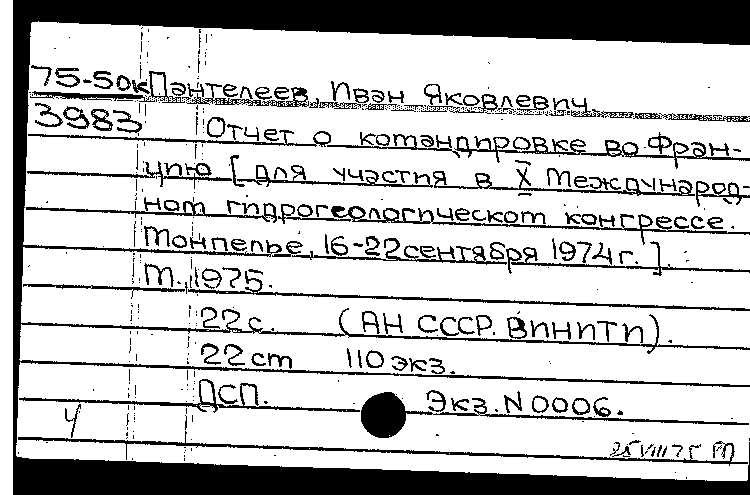 75-50к Пантелеев, Иван Яковлевич.
3983 Отчет о командировке во Фран-
цию [для участия в X Международ-
ном гидрогеологическом конгрессе.
Монпелье, 16-22 сентября 1974 г.].
М., 1975.
22 с. (АН СССР. ВИНИТИ).
22 см 110 экз.
ДСП. Экз. N 0006.
4
25 VIII 75